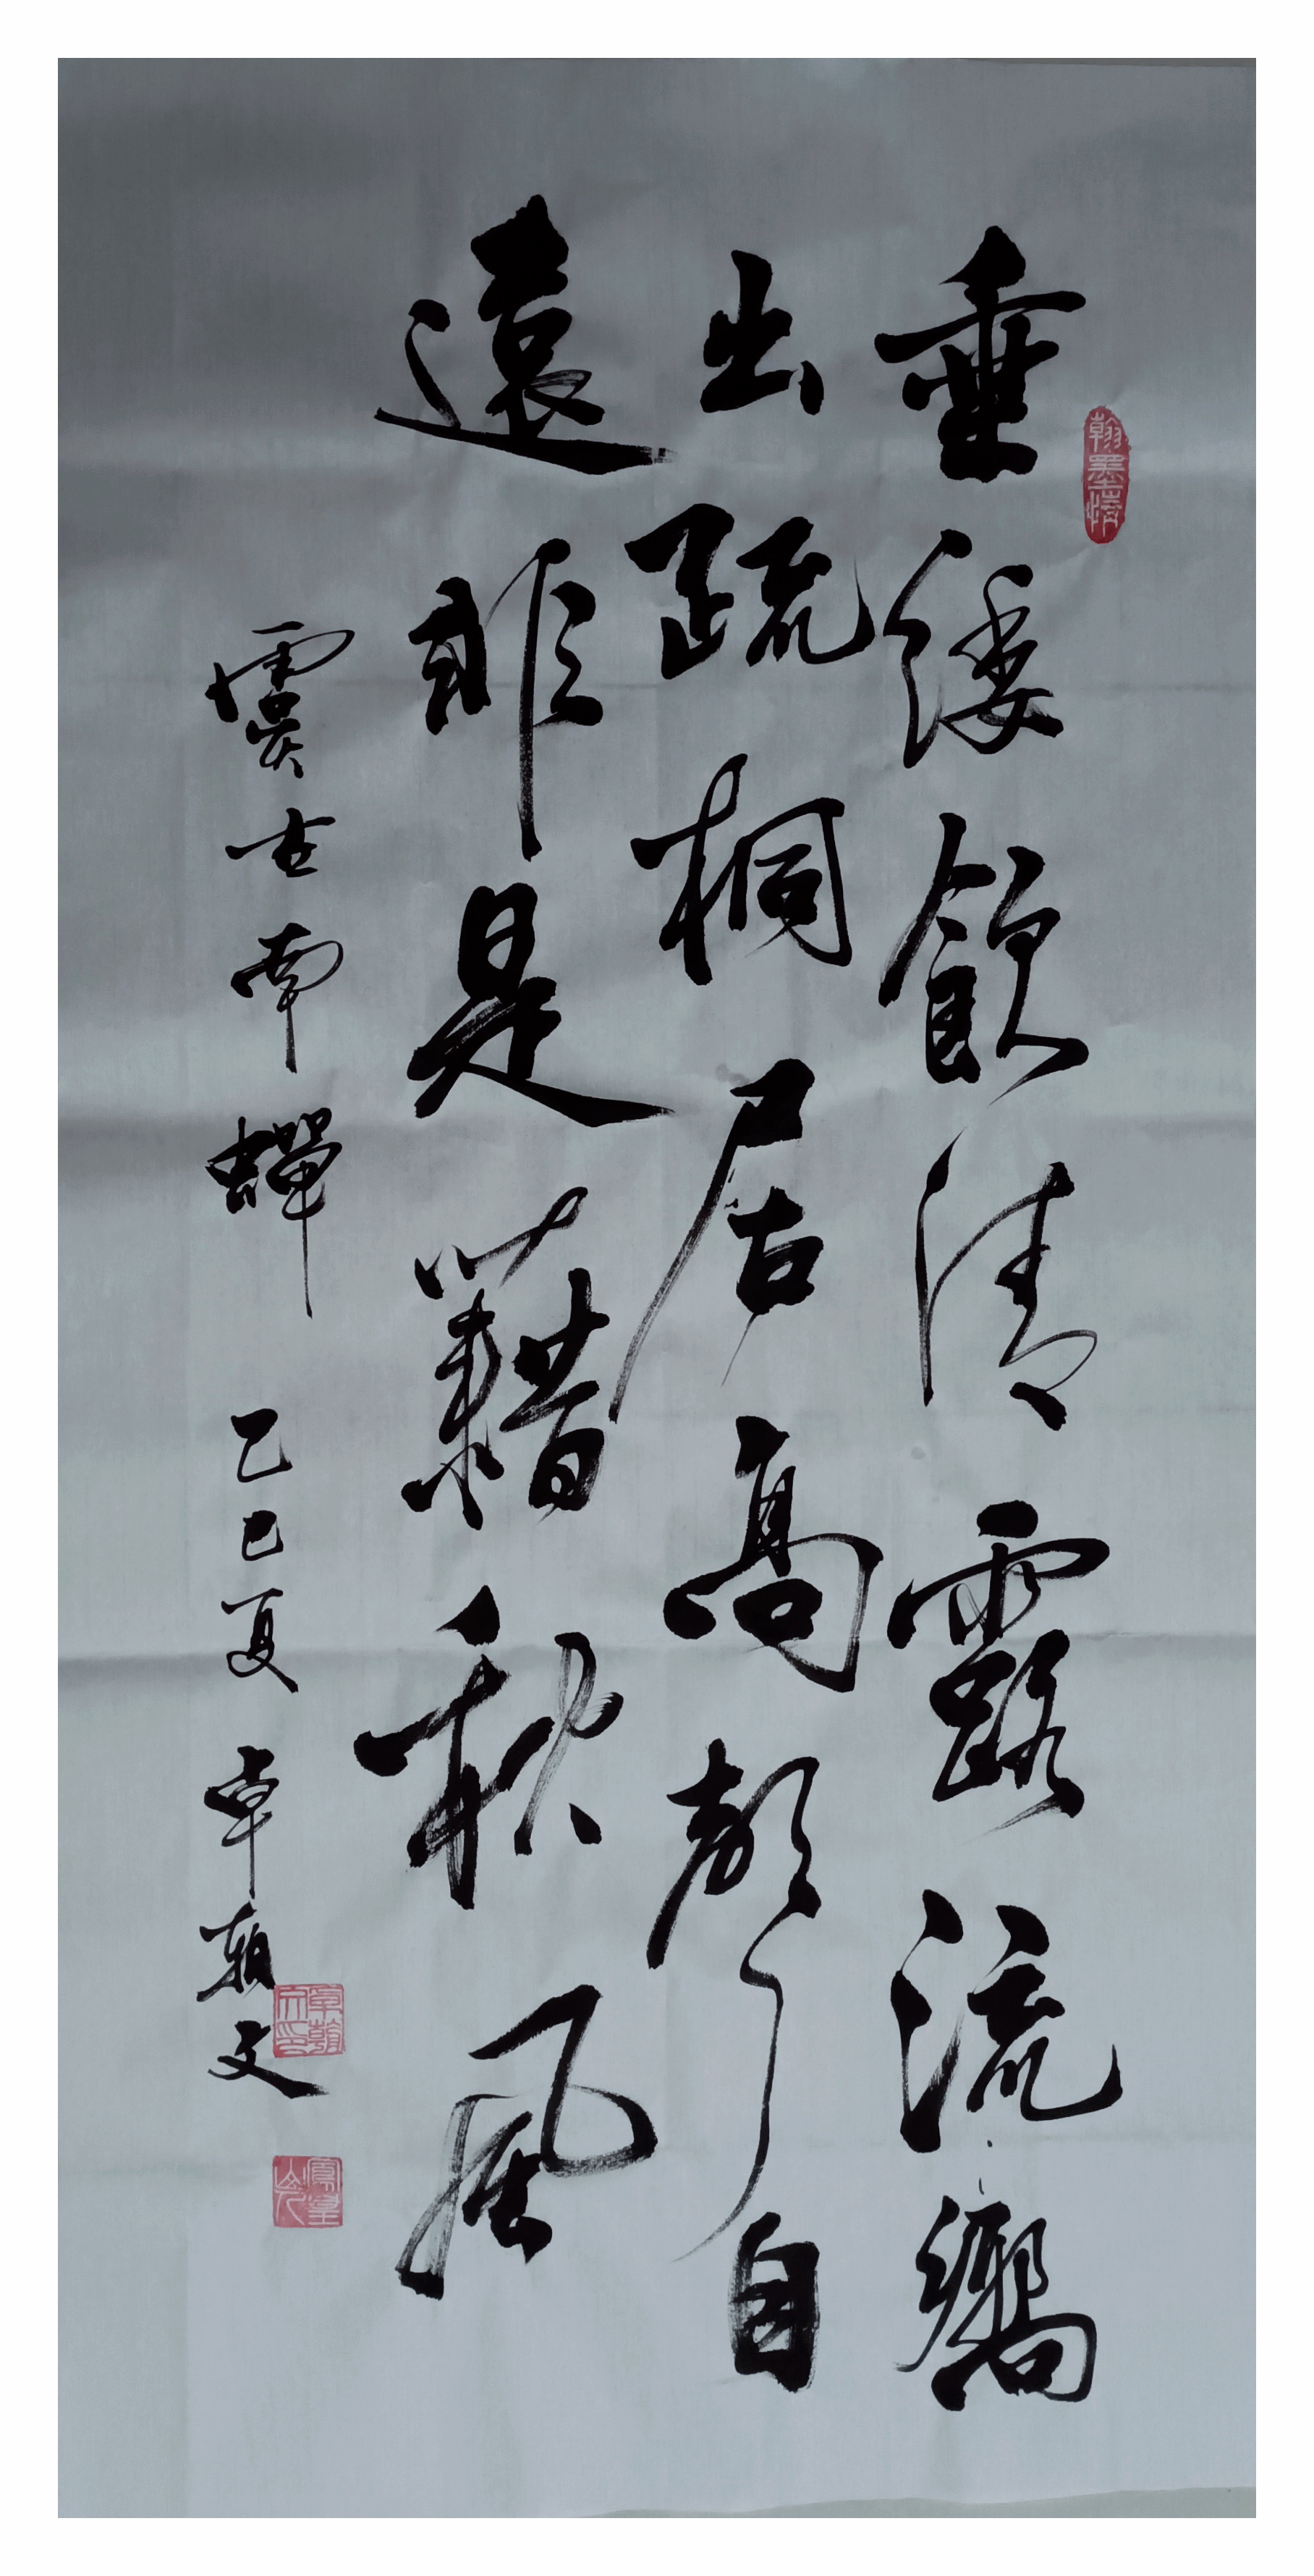 翰墨情
垂緌飲清露流響
出疏桐居高聲自
遠非是藉秋風
虞世南蟬 乙巳夏 卓朝文
鳳凰山人